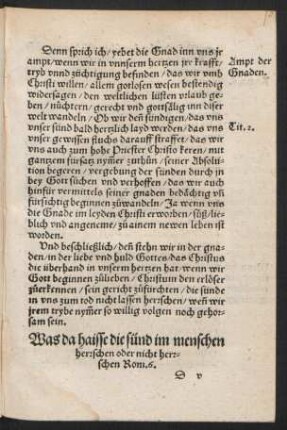 Denn sprich ich / yebet die Gnad inn vns jr
ampt / wenn wir in vnnserm hertzen jrr krafft /
tryb vnnd züchtigung befinden / das wir vmb
Christi willen / allem gotlosen wesen bestendig
widersagen / den weltlichen lüsten vrlaub ge-
ben / nüchtern / gerecht vnd gottsälig inn diser
welt wandeln / Ob wir deñ sündigen / das vns
vnser sünd bald hertzlich layd werden / das vns
vnser gewissen fluchs darauff straffet / das wir
vns auch zum hohe Priester Christo keren / mit
gantzem fürsatz nym̃er zuthůn / seiner Absoluti-
tion begeren / vergebung der sünden durch in
bey Got süchen vnd verhoffen / das wir auch
hinfür vermittels seiner gnaden bedächtig vñ
fürsichtig beginnen zůwandeln / Ja wenn vns
die Gnade im leyden Christi erworben / süß / lie-
blich vnd angeneme / zů ainem newen leben ist
worden.
Vnd beschließlich / deñ stehn wir in der gna-
den / in der liebe vnd huld Gottes / das Christus
die überhand in vnserm hertzen hat / wenn wir
Gott beginnen zůlieben / Christum den erlöser
zůerkennen / sein gericht zůfürchten / die sünde
in vns zum tod nicht lassen herrschen / weñ wir
jrem trybe nym̃er so willig volgen noch gehor-
sam sein.
Was da haisse die sünd im menschen
herrschen oder nicht herr-
schen Rom. 6.
D v
Ampt der
Gnaden.
Tit. 2.